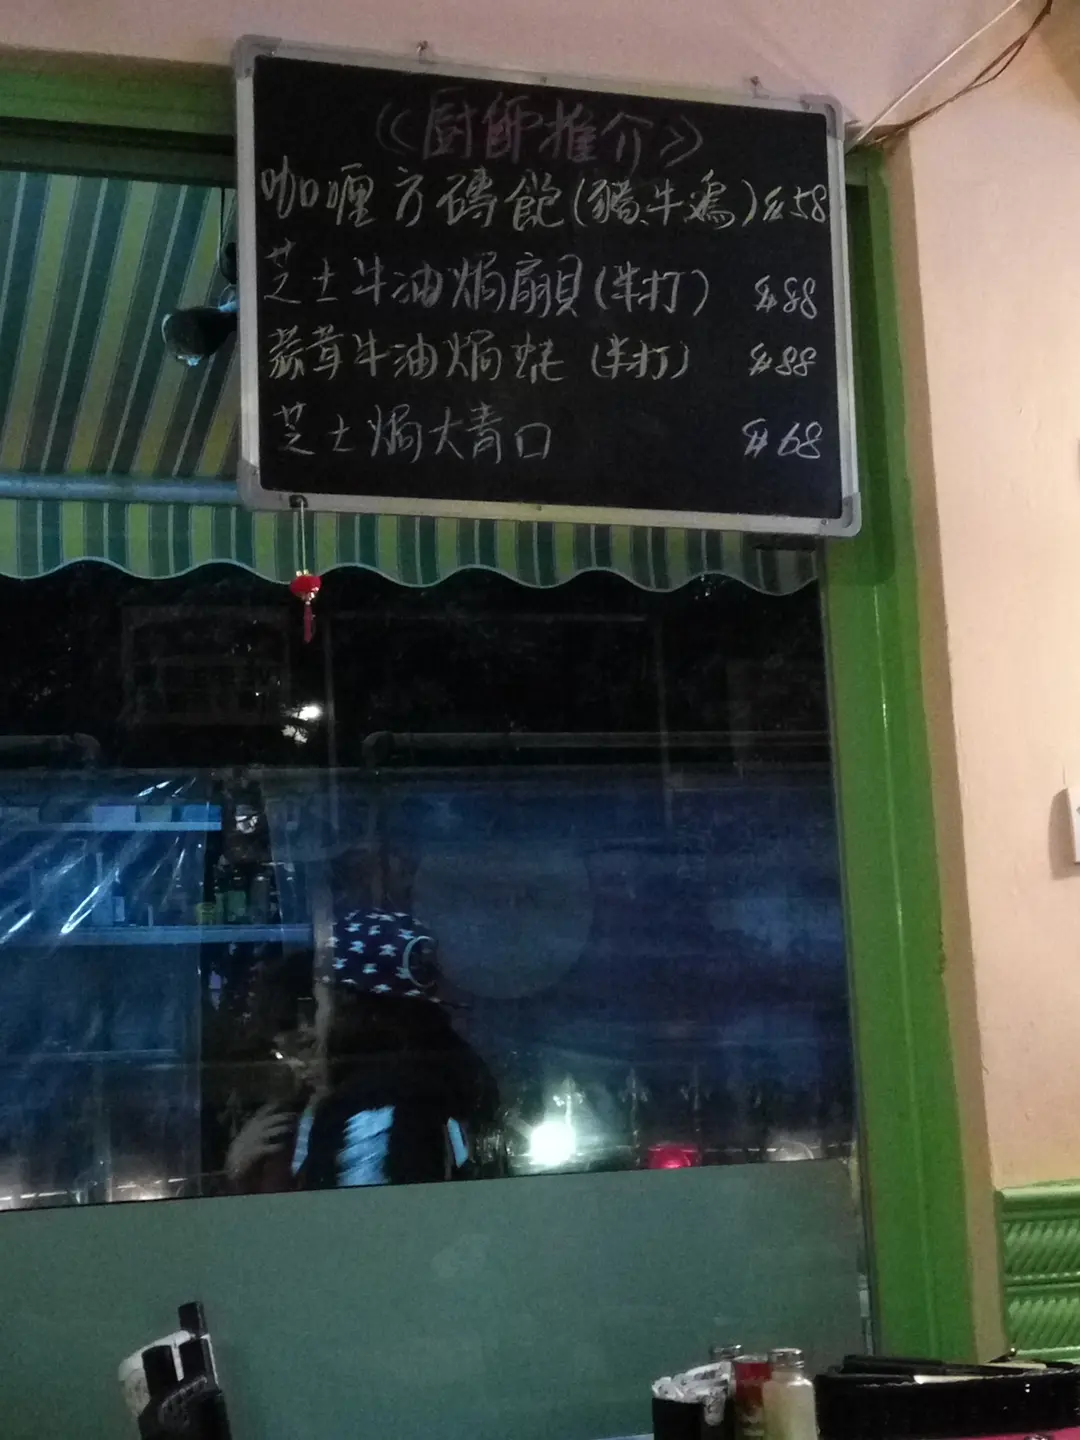 《厨師推介》
咖喱方磚飽(豬牛鷄) $58
芝士牛油焗扇貝(半打) $88
蒜茸牛油焗蚝(半打) $88
芝士焗大青口 $68